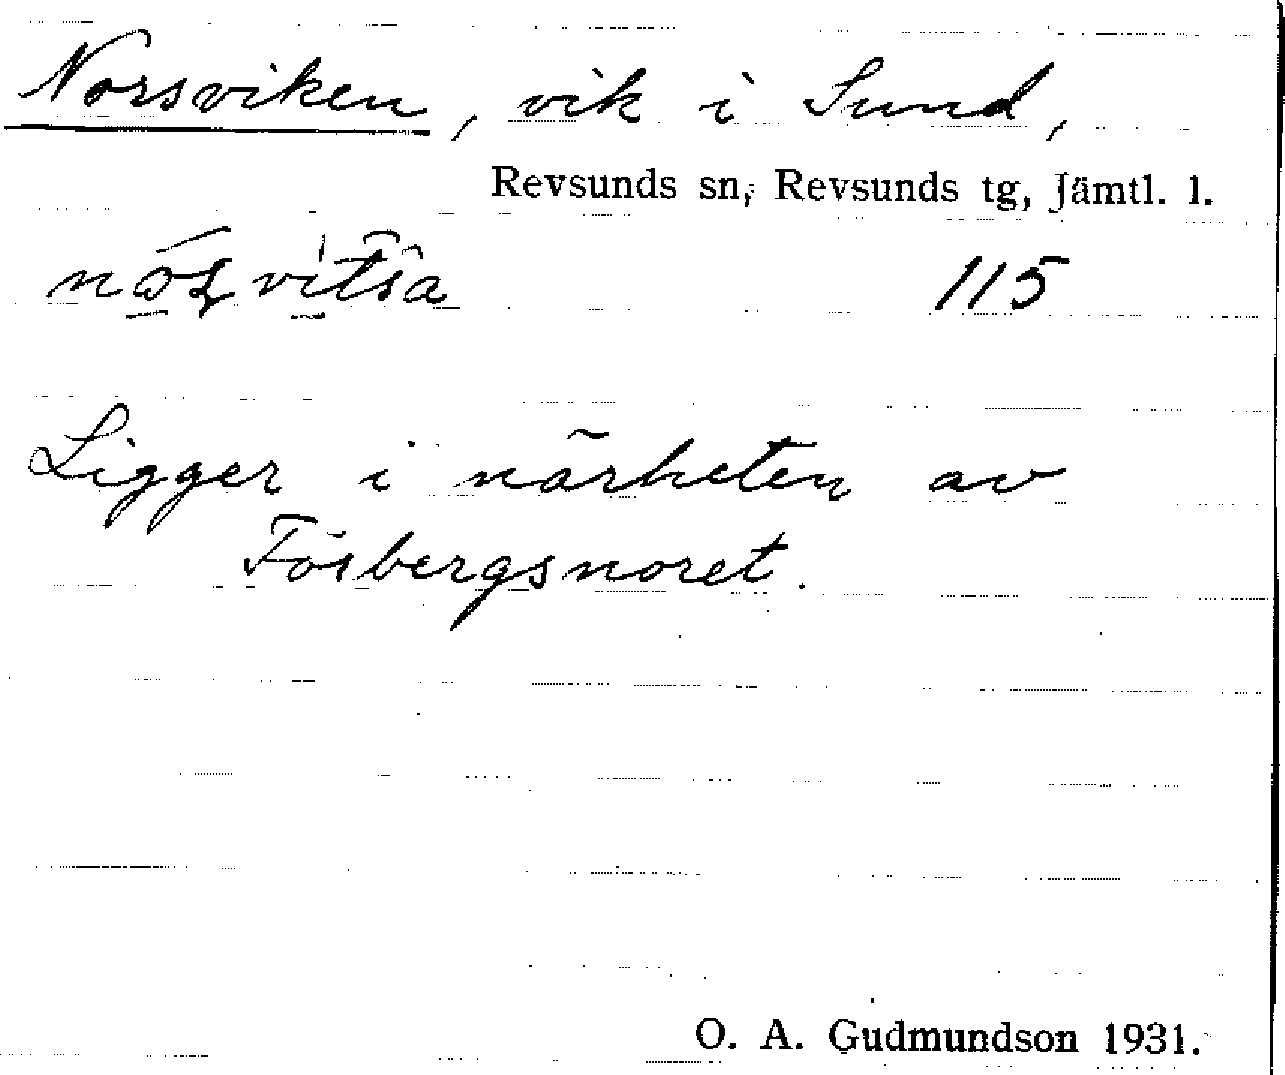 Norsviken, vik i Sund,
Revsunds sn, Revsunds tg, Jämtl. l.
115
Ligger i närheten av
Fösbergsnoret.
O. A. Gudmundson 1931.